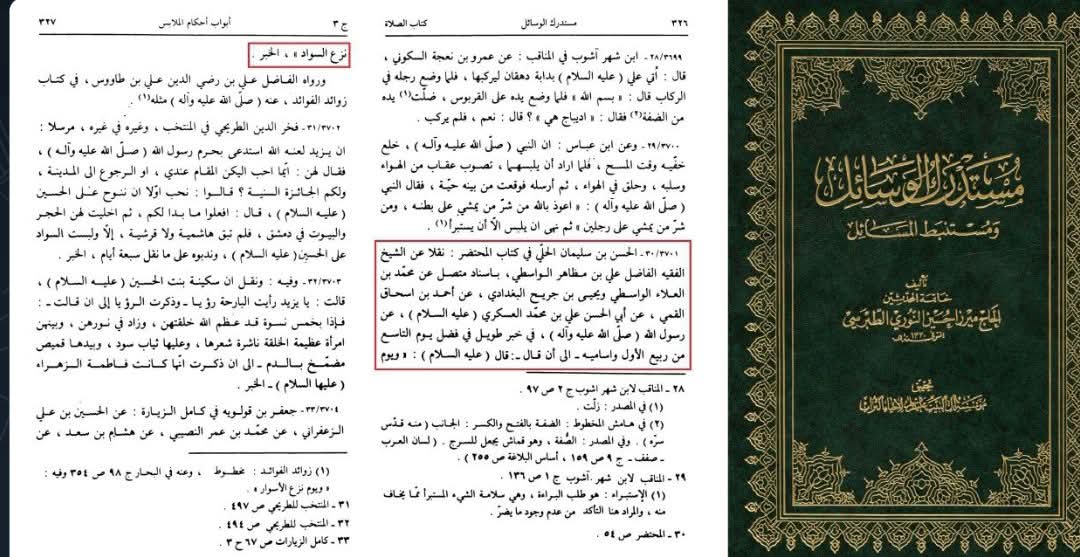 ٣٢٦ مستدرك الوسائل كتاب الصلاة
٢٨/٣٦٩٩ ـ ابن شهر آشوب في المناقب : عن عمرو بن نعجة السكوني ،
قال : أُتي علي ( عليه السلام ) بدابة دهقان ليركبها ، فلما وضع رجله في
الركاب قال : « بسم الله » فلما وضع يده على القربوس ، ضلّت(١) يده
من الضفة(٢) فقال : « اديباج هي » ؟ قال : نعم ، فلم يركب .
٢٩/٣٧٠٠ ـ وعن ابن عباس : ان النبي ( صلّى الله عليه وآله ) ، خلع
خفّيه وقت المسح ، فلما اراد أن يلبسهما ، تصوب عقاب من الهواء
وسلبه ، وحلق في الهواء ، ثم أرسله فوقعت من بينه حيّة ، فقال النبي
( صلّى الله عليه وآله ) : « اعوذ بالله من شرّ من يمشي على بطنه ، ومن
شرّ من يمشي على رجلين » ثم نهى ان يلبس الّا أن يستبرأ(١) .
٣٠/٣٧٠١ ـ الحسن بن سليمان الحلّي في كتاب المحتضر : نقلا عن الشيخ
الفقيه الفاضل علي بن مظاهر الواسطي ، باسناد متصل عن محمّد بن
العلاء الواسطي ويحيى بن جريح البغدادي ، عن أحمد بن اسحاق
القمي ، عن أبي الحسن علي بن محمّد العسكري ( عليه السلام ) ، عن
رسول الله ( صلّى الله عليه وآله ) ، في خبر طويل في فضل يوم التاسع
من ربيع الأول واساميه ـ الى أن قال ـ : قال ( عليه السلام ) : « ويوم
٢٨ ـ المناقب لابن شهر آشوب ج ٢ ص ٩٧ .
(١) في المصدر : زلّت .
(٢) في هامش المخطوط : الضفة بالفتح والكسر : الجانب ( منه قدّس
سرّه ) . وفي المصدر : الصُّفة ، وهو قماش يجعل للسرج . ( لسان العرب
ـ صفف ـ ج ٩ ص ١٥٩ ، أساس البلاغة ص ٢٥٥ ) .
٢٩ ـ المناقب لابن شهر آشوب ج ١ ص ١٣٦ .
(١) الإستبراء : هو طلب البراءة ، وهي سلامة الشيء المستبرأ ممّا يخاف
منه ، والمراد هنا التأكد من عدم وجود ما يضرّ .
٣٠ ـ المحتضر ص ٥٤ .
ج ٣ أبواب أحكام الملابس ٣٢٧
نزع السواد » ، الخبر .
ورواه الفاضل علي بن رضي الدين علي بن طاووس ، في كتاب
زوائد الفوائد ، عنه ( صلّى الله عليه وآله ) مثله(١) .
٣١/٣٧٠٢ ـ فخر الدين الطريحي في المنتخب ، وغيره في غيره ، مرسلا :
ان يزيد لعنه الله استدعى بحرم رسول الله ( صلّى الله عليه وآله ) ،
فقال لهن : ايّما احب اليكن المقام عندي ، او الرجوع الى المدينة ،
ولكم الجائزة السنية ؟ قالوا : نحب اوّلا ان ننوح على الحسين
( عليه السلام ) ، قال : افعلوا ما بدا لكم ، ثم اخليت لهن الحجر
والبيوت في دمشق ، فلم تبق هاشمية ولا قرشية ، إلّا ولبست السواد
على الحسين( عليه السلام ) ، وندبوه على ما نقل سبعة أيام ، الخبر .
٣٢/٣٧٠٣ ـ وفيه : ونقل ان سكينة بنت الحسين ( عليه السلام ) ،
قالت : يا يزيد رأيت البارحة رؤيا ـ وذكرت الرؤيا إلى ان قالت ـ :
فإذا بخمس نسوة قد عظم الله خلقتهن ، وزاد في نورهن ، وبينهن
امرأة عظيمة الخلقة ناشرة شعرها ، وعليها ثياب سود ، وبيدها قميص
مضمّخ بالدم ـ الى ان ذكرت انّها كانت فاطمة الزهراء
( عليها السلام ) ـ الخبر .
٣٣/٣٧٠٤ ـ جعفر بن قولويه في كامل الزيارة : عن الحسين بن علي
الزعفراني ، عن محمّد بن عمر النصيبي ، عن هشام بن سعد ، عن
(١) زوائد الفوائد : مخطوط ، وعنه في البحار ج ٩٨ ص ٣٥٤ وفيه :
« ويوم نزع الأسوار » .
٣١ ـ المنتخب للطريحي ص ٤٩٧ .
٣٢ ـ المنتخب للطريحي ص ٤٩٤ .
٣٣ ـ كامل الزيارات ص ٦٧ ح ٣ .
مستدرك الوسائل
ومستنبط المسائل
تأليف
خاتمة المحدثين
الحاج ميرزا حسين النوري الطبرسي
المتوفى ١٣٢٠ هـ
تحقيق
مؤسسة آل البيت عليهم السلام لإحياء التراث